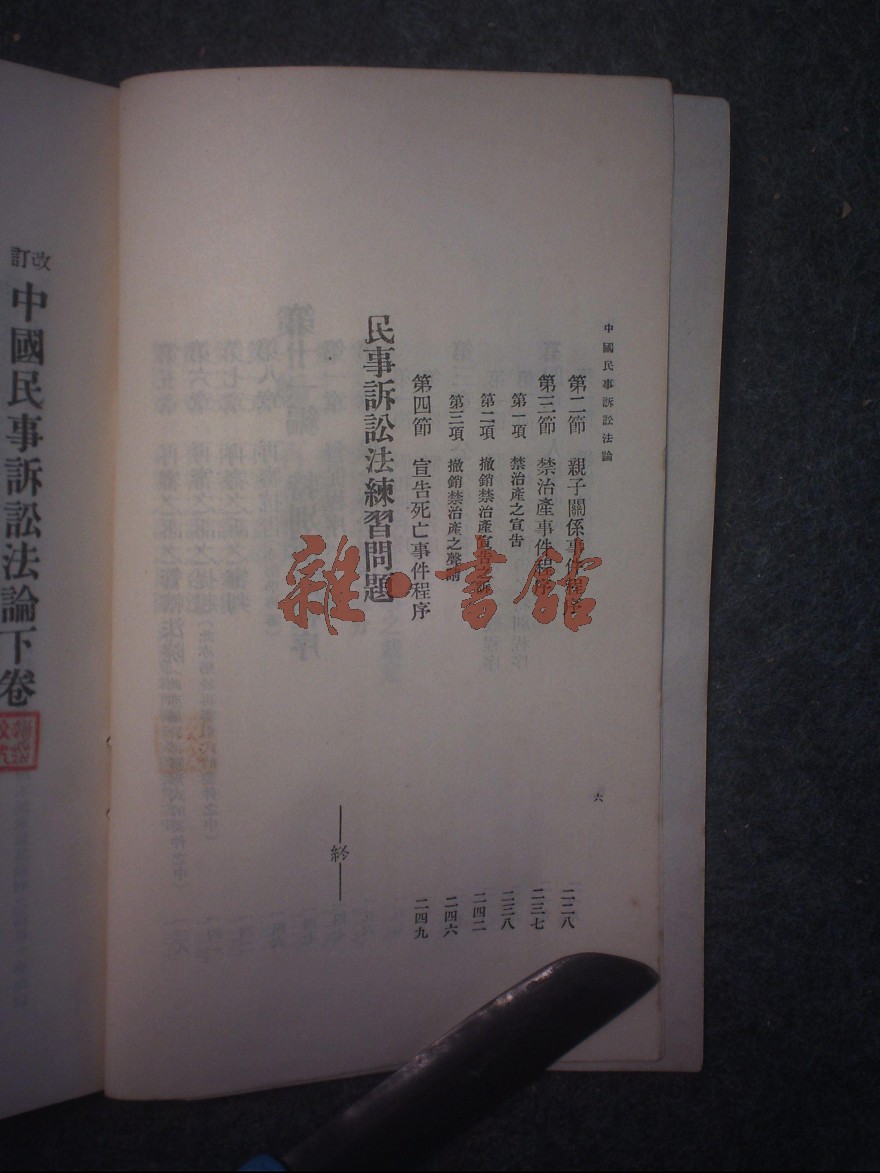 中國民事訴訟法論
六
第二節 親子關係事件程序 二二八
第三節 禁治產事件程序 二三七
第一項 禁治產之宣告 二三八
第二項 撤銷禁治產宣告之訴 二四二
第三項 撤銷禁治產之聲請 二四六
第四節 宣告死亡事件程序 二四九
民事訴訟法練習問題
終
雜·書館
改訂
中國民事訴訟法論下卷